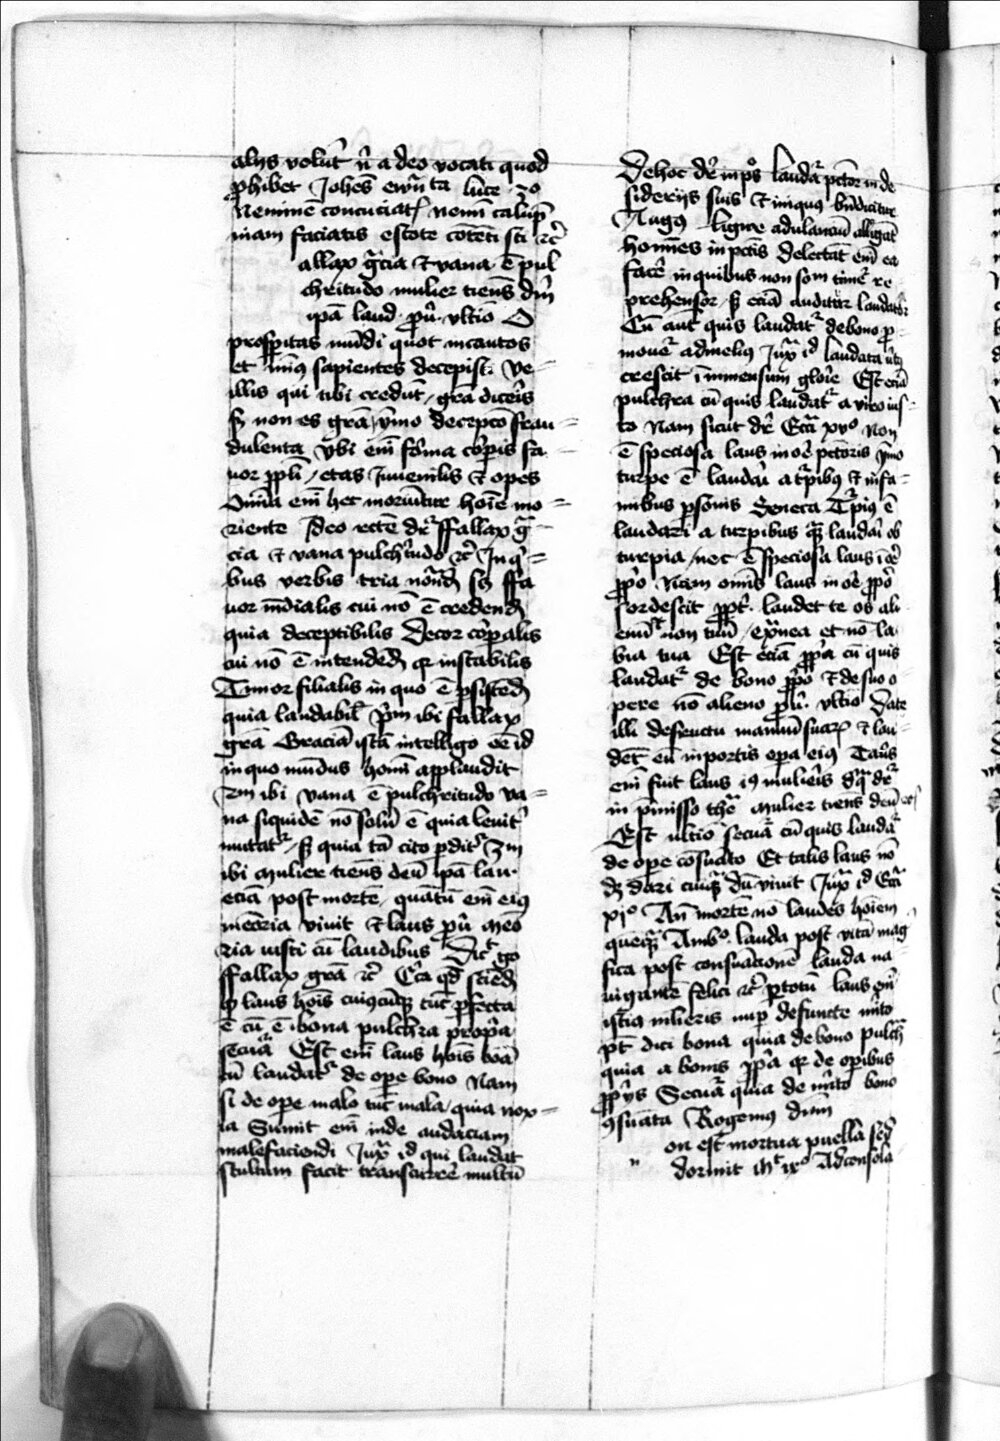 alijs volūt n̄ a deo vocati quod
ꝓhibet Johēs ewn̄ta luce 3o
Neminē concuciat neminī calūp
niam faciatis estote cōtēti sti ꝛc̄
allax grcia et vana ē pul
chritudo mulier timēs dn̄m
ip̄a laud. ꝓu. vltīo O
prosp̄itas mūdi quot incautos
et minꝰ sapientes decepisti Ve
illis qui tibi credūt, gra diceris
sꝫ non es grā ymo decepcō frau
dulenta Vbi em̄ forma corꝑis fa
uor ppl̄i, etas Juvenilis et opes
Om̄ia em̄ hec moriūtur hoīe mo
riente Ideo recte dr̄ ffallax gr̄a
cia et vana pulchritudo ꝛc̄ In qi
bus verbis tria notand sꝫ ffa
uor mūdialis cui nō ē credend
quia deceptibilis Decor corꝑalis
cui nō ē intendend qr instabilis
Timor filialis in quo ē ꝑsistend
quia laudabil Prm ibi fallax
grā Graciā istā intelligo oē id
in quo mūdus homī applaudit
2m ibi vana ē pulchritudo va
na siquidē nō solū ē quia leuitr
mutatr, sꝫ quia tā cito ꝑditr 3m
ibi mulier timēs deū ipā lau.
eciā post mortē, quātū em̄ eiꝰ
memoria viuit et laus ꝓu. Meō
ria iusti cū laudibus Dic go
ffallax grā ꝛc̄ Cca qd sciend
ꝙ laus hoīs cuiꝰcūqꝫ tūc ꝑfecta
ē cū ē bona pulchra propria
secūa Est em̄ laus hoīs bōa
cū laudatr de oꝑe bono Nam
si de oꝑe malo tūc mala, quia nox
ia Sumit em̄ inde audaciam
malefaciendi Jux id qui laudat
stultum facit transcurrere multū
De hoc dr̄ in ps laudatr pctor in de
siderijs suis et iniquꝰ bn̄dicitur
Augꝰ ligue adulanciū alligāt
homīes in pctis delectat em̄ ea
facē in quibus non solm timetr re
prehensor, sꝫ eciā auditur laudator
Cū aut quis laudatr de bono ꝓ
mouetr ad melius Jux id laudata vtꝰ
crescit ī immensum glorie Est eciā
pulchra cū quis laudatr a viro ius
to Nam sicut dr̄ Ecci xvo Non
ē speciosa laus in ore pctoris ymo
turpe ē laudari a turpibus et infa
mibus ꝑsonis Seneca Turpiꝰ ē
laudari a turpibus quam laudari ob
turpia, nec ē speciosa laus ī oe
ꝓpo Nam omīs laus in ore ꝓpo
sordescit ꝓu. laudet te os ali
enū et non tuū, extranea et nō la
bia tua Est eciā ꝓpa cū quis
laudatr de bono ꝓpo et de suo o
pere nō alieno ꝓu. vltīo Date
illi de fructu manuū suar et lau
dēt eū in portis opa eiꝰ Talis
em̄ fuit laus iꝰ mulieris de qua dr̄
in p̄misso the. mulier timēs deū ꝛc̄
Est vltīo secura cū quis laudatr
de oꝑe cōsūato Et talis laus nō
dꝫ dari cuiqꝫ dū viuit Jux id Ecci
xjo An̄ mortē nō laudes hoīem
quēqꝫ Ambo. lauda post vitā mag
fica post consūacionē lauda na
uigantē felici ꝛc̄ ꝑ totū laus qn̄
istiꝰ mlieris nup defuncte mito
pt dici bona quia de bono pulchr
quia a bonis ꝓpa qr de oꝑibus
ꝓpijs Secura quia de mito bono
ꝯsūata Rogemꝰ dūm
on est mortua puella sed
dormit mt ixo Ad consola